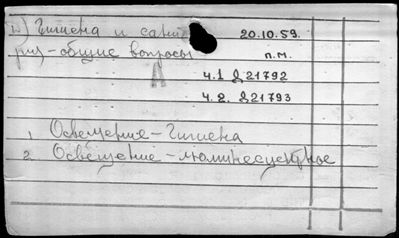 10) Гигиена и сани 20.10.59.
риз-общие вопросы п.м.
А
ч.1 Д21792
ч.2. Д21793
1. Освещение-Гигиена
2. Освещение-люминесцентное